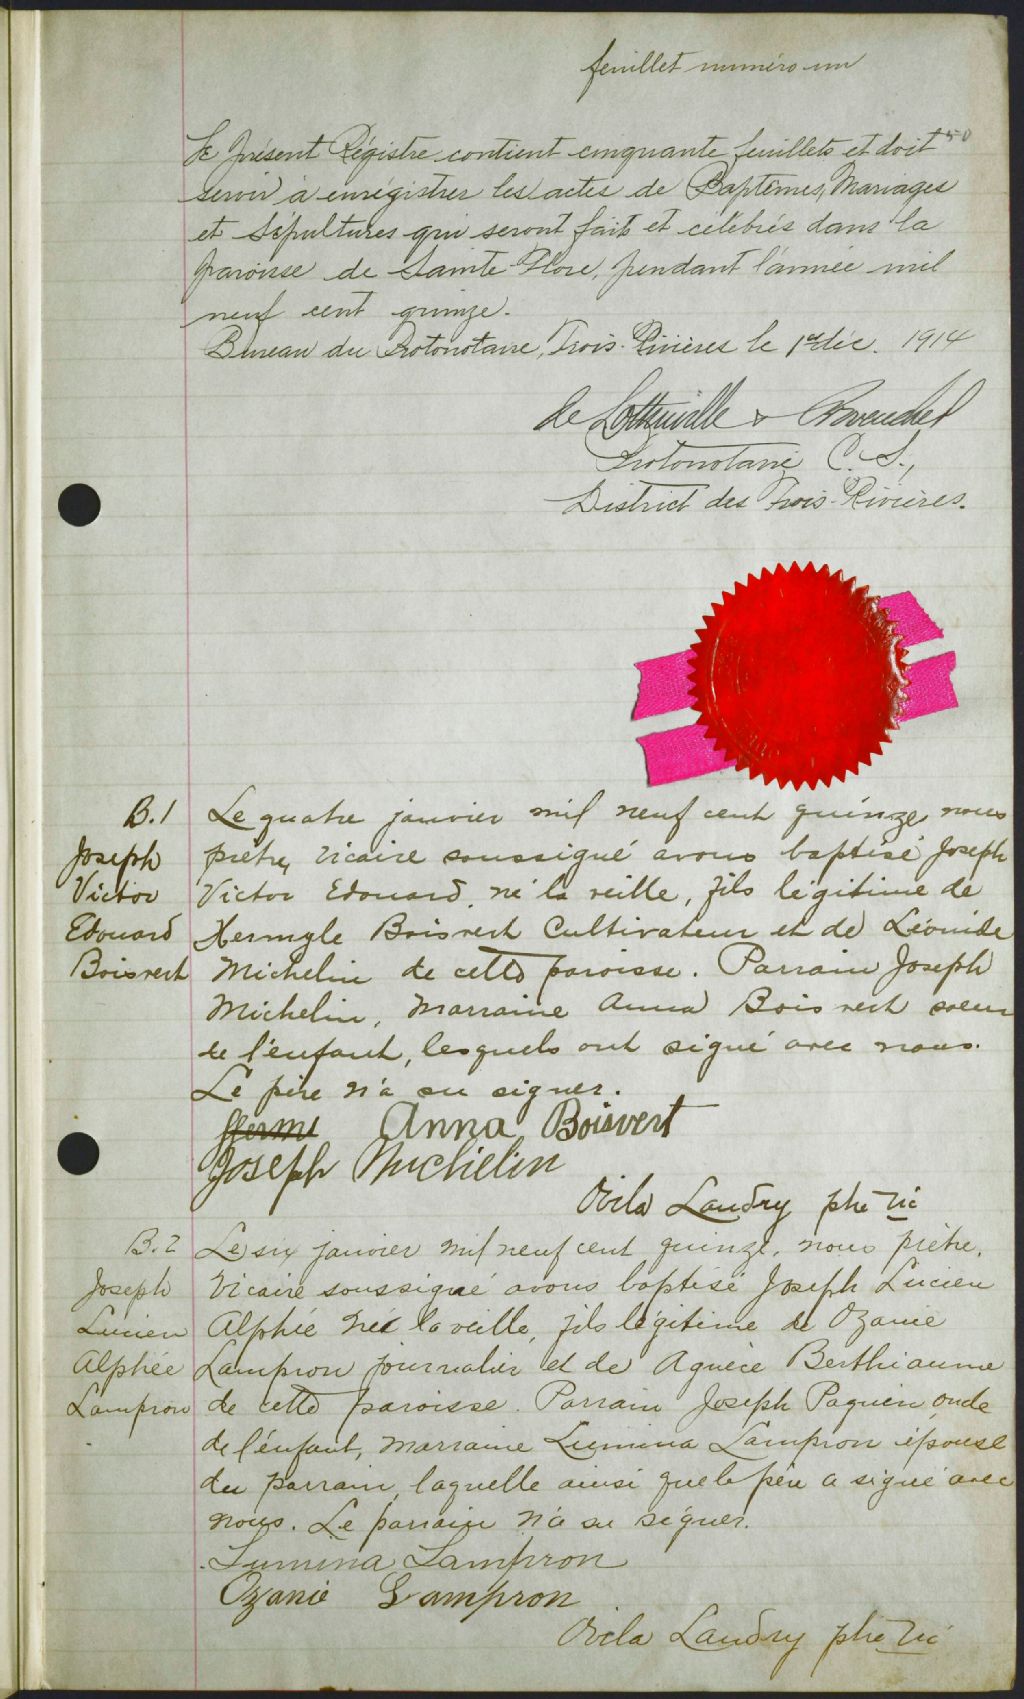 feuillet numéro un
50
Le présent Régistre contient cinquante feuillets et doit
servir à enrégistrer les actes de Baptêmes, Mariages
et Sépultures qui seront fait et célébrés dans la
paroisse de Sainte-Flore, pendant l'année mil
neuf cent quinze.
Bureau du Protonotaire, Trois-Rivières le 1er déc. 1914
de Lottinville &
Protonotaire C. S.,
District des Trois-Rivières.
B.1
Joseph
Victor
Edouard
Boisvert
Le quatre janvier mil neuf cent quinze, nous
prêtre, vicaire soussigné avons baptisé Joseph
Victor Edouard, né la veille, fils légitime de
Hermyle Boisvert Cultivateur et de Léonide
Michelin de cette paroisse. Parrain Joseph
Michelin, Marraine Anna Boisvert soeur
de l'enfant, lesquels ont signé avec nous.
Le père n'a su signer.
Anna Boisvert
Joseph Michelin
Ovila Landry ptre vic
B.2
Joseph
Lucien
Alphée
Lampron
Le six janvier mil neuf cent quinze, nous prêtre,
vicaire soussigné avons baptisé Joseph Lucien
Alphée né la veille, fils légitime de Ozanie
Lampron journalier et de Agnèce Berthiaume
de cette paroisse. Parrain Joseph Paquin oncle
de l'enfant, marraine Lumina Lampron épouse
du parrain, laquelle ainsi que le père a signé avec
nous. Le parrain n'a su signer.
Lumina Lampron
Ozanie Lampron
Ovila Landry ptre vic